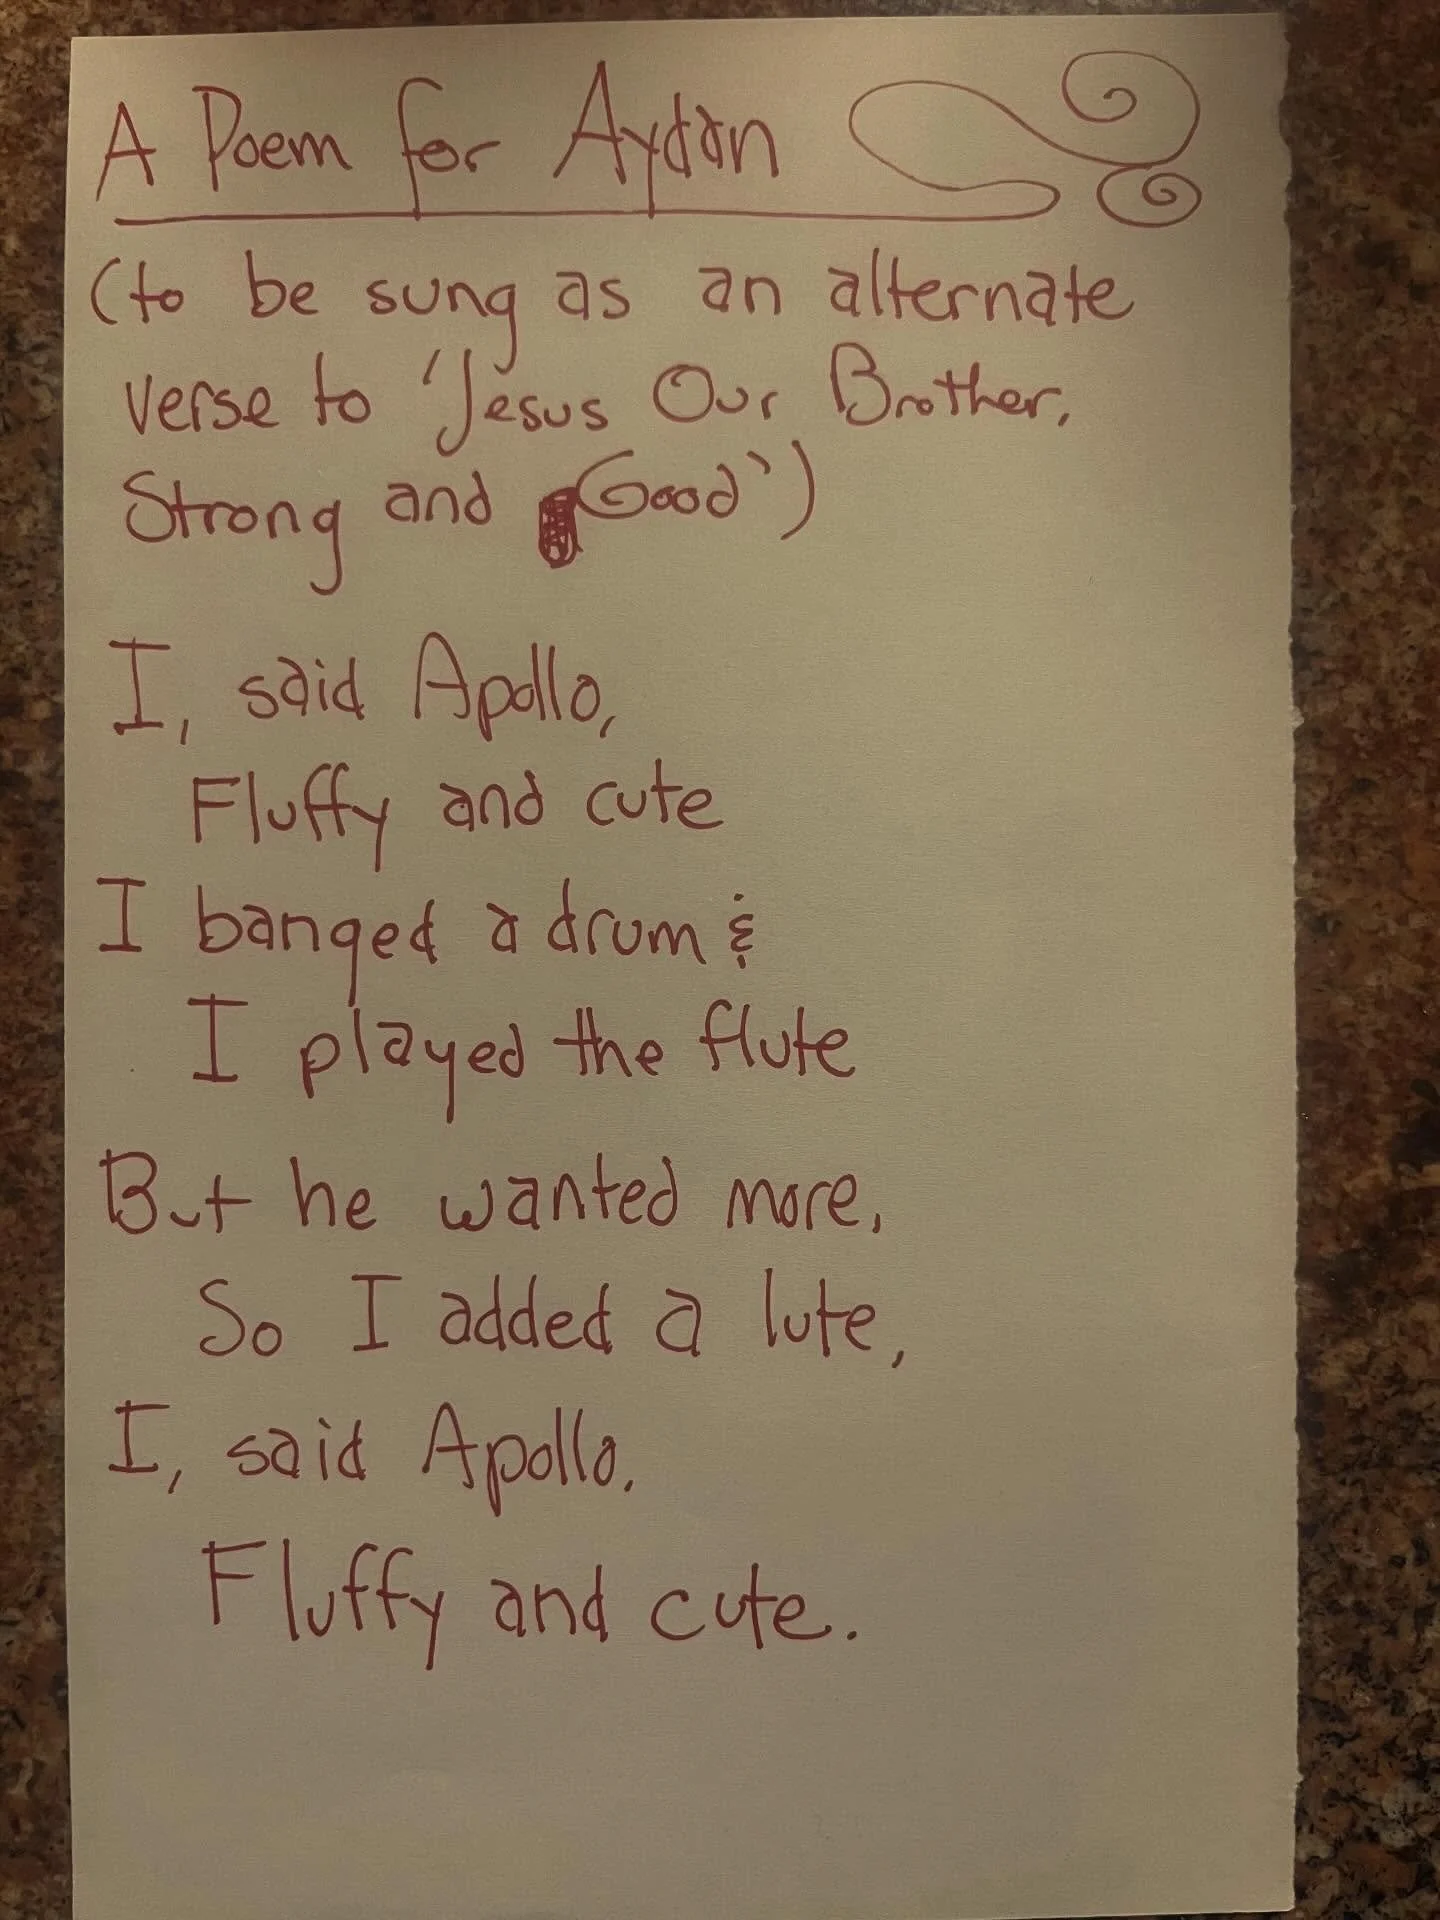 A Poem for Aydan
(to be sung as an alternate
verse to 'Jesus Our Brother,
Strong and Good')
I, said Apollo,
Fluffy and cute
I banged a drum &
I played the flute
But he wanted more,
So I added a lute,
I, said Apollo,
Fluffy and cute.